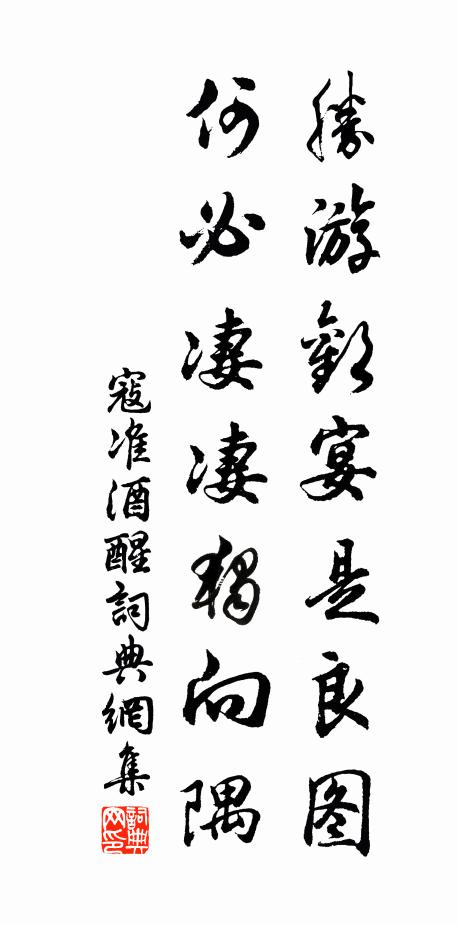 勝游歡宴是良图
何必凄凄獨向隅
寇准酒醒詞典網集
詞典网印